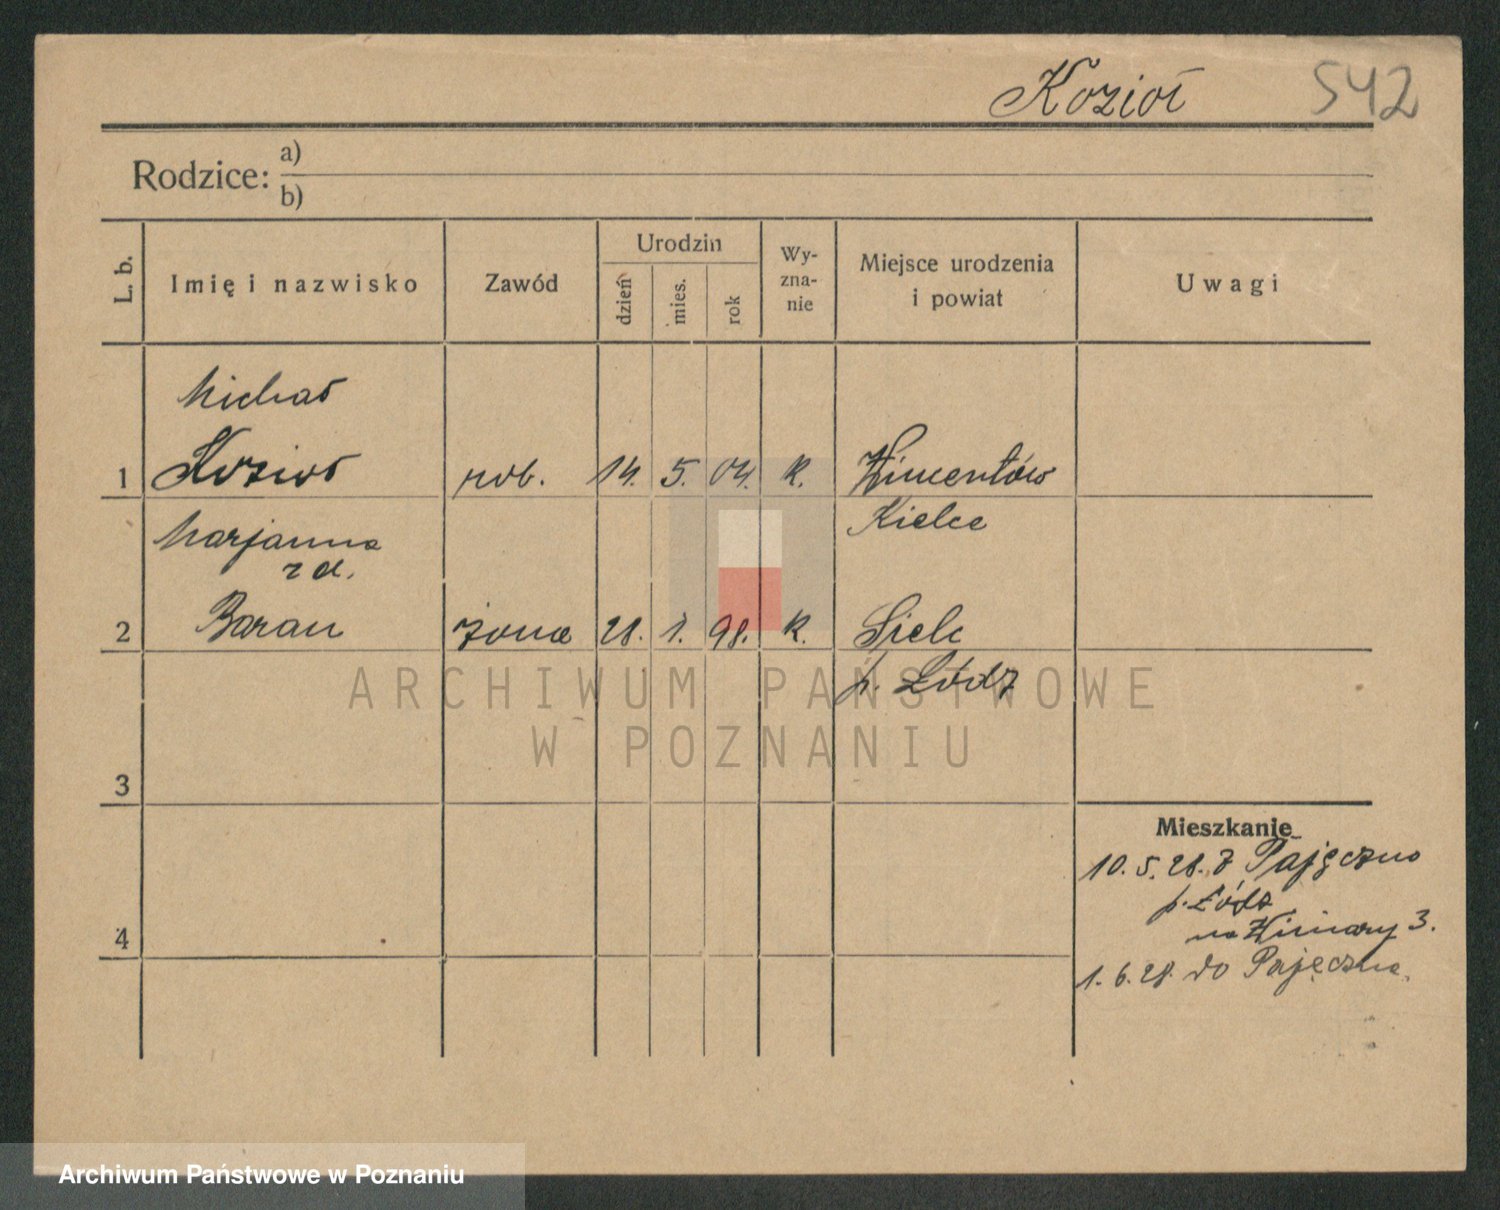 Kozioł 542
Rodzice: a)
b)
L. b.
Imię i nazwisko
Zawód
Urodzin
dzień
mies.
rok
Wy-
zna-
nie
Miejsce urodzenia
i powiat
Uwagi
Michał
1 Kozioł rob. 14. 5. 04. K. Wincentów
Kielce
Marjanna
z d.
2 Baran żona 28. 1. 98. K. Siele
p. Łódz
3
4
Mieszkanie
10. 5. 28. z Pajęczno
p. Łódz
na Winiary 3.
1. 6. 28. do Pajęczna.
ARCHIWUM PAŃSTWOWE
W POZNANIU
Archiwum Państwowe w Poznaniu